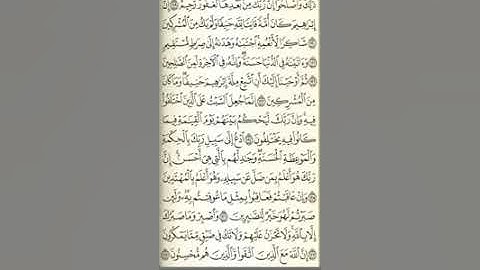 ذَٰلِكَ وَأَصْلَحُوٓا۟ إِنَّ رَبَّكَ مِنۢ بَعْدِهَا لَغَفُورٌ رَّحِيمٌ ۝١١٩ إِنَّ
إِبْرَٰهِيمَ كَانَ أُمَّةً قَانِتًا لِّلَّهِ حَنِيفًا وَلَمْ يَكُ مِنَ ٱلْمُشْرِكِينَ
۝١٢٠ شَاكِرًا لِّأَنْعُمِهِ ٱجْتَبَىٰهُ وَهَدَىٰهُ إِلَىٰ صِرَٰطٍ مُّسْتَقِيمٍ
۝١٢١ وَءَاتَيْنَٰهُ فِى ٱلدُّنْيَا حَسَنَةً وَإِنَّهُۥ فِى ٱلْءَاخِرَةِ لَمِنَ ٱلصَّٰلِحِينَ
۝١٢٢ ثُمَّ أَوْحَيْنَآ إِلَيْكَ أَنِ ٱتَّبِعْ مِلَّةَ إِبْرَٰهِيمَ حَنِيفًا وَمَا كَانَ
مِنَ ٱلْمُشْرِكِينَ ۝١٢٣ إِنَّمَا جُعِلَ ٱلسَّبْتُ عَلَى ٱلَّذِينَ ٱخْتَلَفُوا۟
فِيهِ وَإِنَّ رَبَّكَ لَيَحْكُمُ بَيْنَهُمْ يَوْمَ ٱلْقِيَٰمَةِ فِيمَا
كَانُوا۟ فِيهِ يَخْتَلِفُونَ ۝١٢٤ ٱدْعُ إِلَىٰ سَبِيلِ رَبِّكَ بِٱلْحِكْمَةِ
وَٱلْمَوْعِظَةِ ٱلْحَسَنَةِ وَجَٰدِلْهُم بِٱلَّتِى هِىَ أَحْسَنُ إِنَّ
رَبَّكَ هُوَ أَعْلَمُ بِمَن ضَلَّ عَن سَبِيلِهِۦ وَهُوَ أَعْلَمُ بِٱلْمُهْتَدِينَ
۝١٢٥ وَإِنْ عَاقَبْتُمْ فَعَاقِبُوا۟ بِمِثْلِ مَا عُوقِبْتُم بِهِۦ وَلَئِن
صَبَرْتُمْ لَهُوَ خَيْرٌ لِّلصَّٰبِرِينَ ۝١٢٦ وَٱصْبِرْ وَمَا صَبْرُكَ
إِلَّا بِٱللَّهِ وَلَا تَحْزَنْ عَلَيْهِمْ وَلَا تَكُ فِى ضَيْقٍ مِّمَّا يَمْكُرُونَ
۝١٢٧ إِنَّ ٱللَّهَ مَعَ ٱلَّذِينَ ٱتَّقَوا۟ وَّٱلَّذِينَ هُم مُّحْسِنُونَ ۝١٢٨